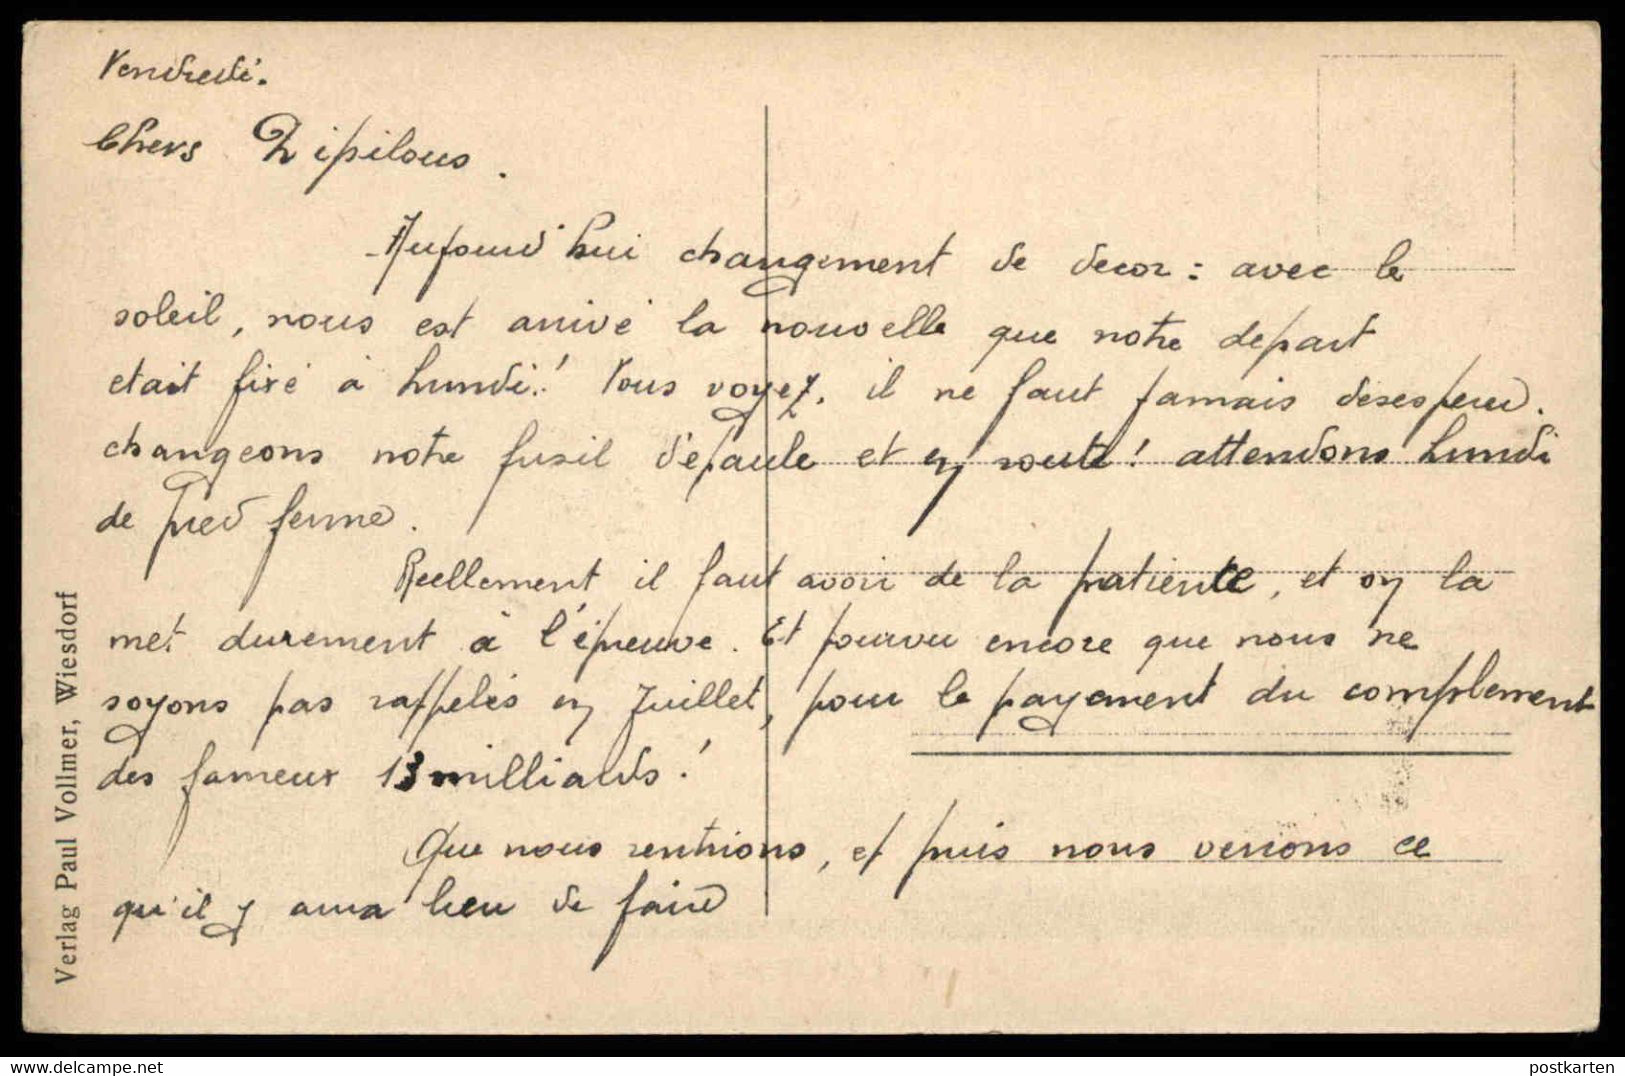 Vendredi.
Chers Zipilous.
Aujourd'hui changement de decor : avec le
soleil, nous est arrivé la nouvelle que notre depart
etait fixé à lundi! Vous voyez, il ne faut jamais desesperer.
changeons notre fusil d'épaule et en route! attendons lundi
de pied ferme.
Reellement il faut avoir de la patience, et on la
met durement à l'épreuve. Et pourvu encore que nous ne
soyons pas rappelés en Juillet, pour le payement du complement
des fameux 13 milliards!
Que nous rentrions, et puis nous verrons ce
qu'il y aura lieu de faire
Verlag Paul Vollmer, Wiesdorf
postkarten
delcampe.net